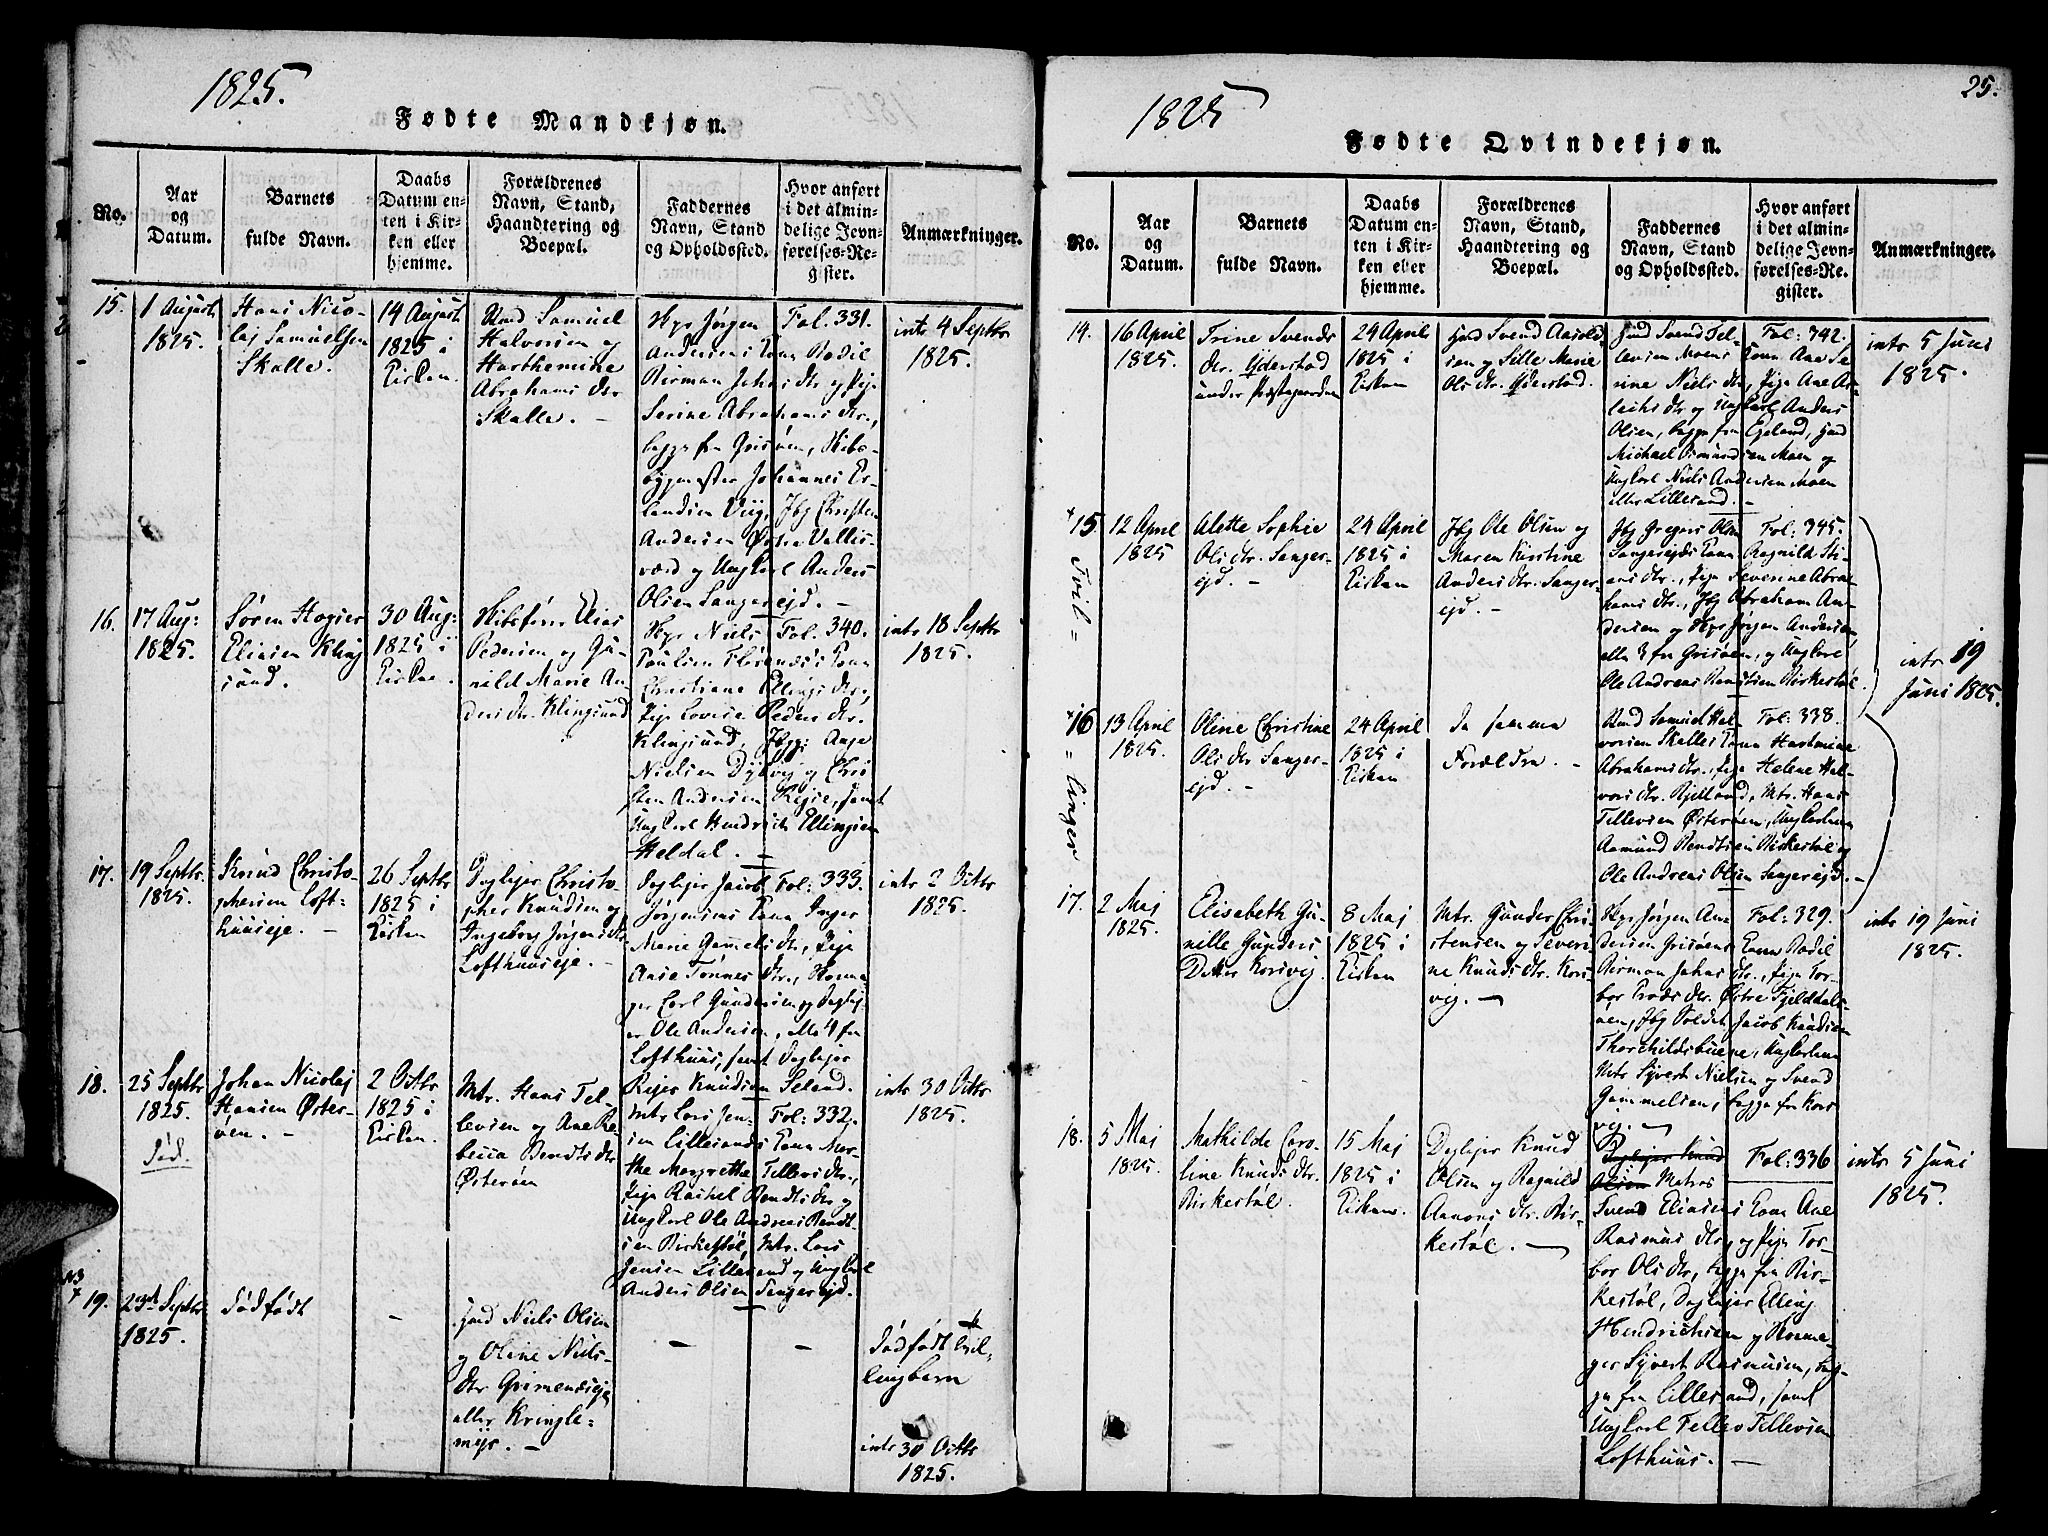 1825.
Fødte Mandkjøn.
No.
Aar
og
Datum.
Barnets
fulde Navn.
Daabs
Datum en-
ten i Kir-
ken eller
hjemme.
Forældrenes
Navn, Stand,
Haandtering og
Boepæl.
Faddernes
Navn, Stand
og Opholdssted.
Hvor anført
i det almin-
delige Jevn-
førelses-Re-
gister.
Anmærkninger.
15.
1 August
1825.
Hans Nico-
laj Samuelsen
Skalle.
14 August
1825 i
Kirken.
Samuel
Halvorsen og
Harthemine
Abrahams dtr
Skalle. -
Jørgen
Andersens Kone Bodil
Birman Johns dtr og Pige
Serine Abrahams dtr.,
begge fra Grisøen, Skibs-
bygmester Johannes Er-
landsen Viig, Christen
Andersen Østre Vallis-
værd og Ungkarl Anders
Olsen Sangereijd. -
Fol. 331.
intr 4 Septbr
1825.
16.
17 Aug:
1825.
Søren Hogier
Eliasen Kling
sund.
30 Aug:
1825 i
Kirken.
Skibsfører Elias
Pedersen og Gu-
nild Marie An-
ders dtr. Klingsund
Niels
Poulsen Florenæs's Kone
Christiane Ellings dtr.,
Pige Lovise Peders dtr.
Klingsund, Aage
Nielsen Dybvig og Chri-
sten Andersen Reije, samt
Ungkarl Hendrich Ellingsen
Heldal. -
Fol. 340.
intr 18 Septbr
1825.
17.
19 Septbr.
1825.
Knud Christo-
phersen Loft-
huuseje. -
26 Septbr
1825 i
Kirken
Dagleyer Christo-
pher Knudsen og
Ingeborg Jørgens dtr
Lofthuuseje. -
Dagleyer Jacob
Jørgensens Kone Inger
Marie Gammels dtr., Pige
Anne Tønnes dtr.,
Carl Gundersen og Dagley-
er Ole Andersen, alle 4 fra
Lofthuus, samt Dagleyer
Rejer Knudsen Seland.
Fol: 333.
intr 2 Octbr
1825.
18.
25 Septbr
1825.
død.
Johan Nicolaj
Hansen Øster-
øen. -
2 Octbr
1825 i
Kirken.
Mtr. Hans Tel-
levsen og Ane Re-
becca Bendts dtr
Østerøen
Mtr Lars Jen-
sen Lillesands Kone Mar-
the Margrethe Tellevs dtr.,
Pige Rachel Bendts dtr og
Ungkarl Ole Andreas Bendt-
sen Birkestøl, Mtr. Lars
Jensen Lillesand og Ungkarl
Anders Olsen Sangereijd.
Fol: 332.
intr 30 Octbr
1825.
NB
+ 19.
23de Septbr
1825.
dødfødt
-
Niels Olsen
og Oline Niels-
dtr Grimenæseje
eller Kringle-
myr. -
-
-
dødfødt tvil-
lingbarn
intr 30 Octbr
1825.
25.
1825
Fødte Qvindekjøn.
No.
Aar
og
Datum.
Barnets
fulde Navn.
Daabs
Datum en-
ten i Kir-
ken eller
hjemme.
Forældrenes
Navn, Stand,
Haandtering og
Boepæl.
Faddernes
Navn, Stand
og Opholdssted.
Hvor anført
i det almin-
delige Jevn-
førelses-Re-
gister.
Anmærkninger.
14.
16 April
1825.
Trine Svends
dtr. Yderstad
under Præstegaarden
24 April
1825 i
Kirken
Svend Aarold-
sen og Sille Marie
Ols dtr. Yderstad.
Svend Tel-
levsen Moens Kone Ane Se-
rine Niels dtr, Pige Ane As-
lachs dtr og Ungkarl Anders
Olsen, begge fra Egeland,
Michael Osmundsen Moen og
Ungkarl Niels Andersen Moen
eller Lillesand. -
Fol: 342.
intr 5 Juni
1825.
+ 15.
Tvil =
12 April
1825
Alette Sophie
Ols dtr. Sanger-
eijd. -
24 April
1825 i
Kirken
Ole Olsen og
Maren Kirstine
Anders dtr. Sanger-
eijd. -
Gregers Olsen
Sangereijds Kone Ragnild Sti-
ans dtr., Pige Severine Abra-
hams dtr., Abraham An-
dersen og Jørgen Andersen,
alle 3 fra Grisøen, og Ungkarl
Ole Andreas Bendtsen Birkestøl.
Fol: 345.
intr 19
Juni 1825.
+ 16
= linger
13 April
1825.
Oline Christine
Ols dtr Sanger-
eijd. -
24 April
1825 i
Kirken
De samme
Forældre. -
Samuel Hal-
vorsen Skalles Kone Hartmine
Abrahams dtr., Pige Helene Hal-
vors dtr. Kjelland, Mtr. Hans
Tellevsen Østerøen, Ungkarlene
Aamund Bendtsen Birkestøl og
Ole Andreas Olsen Sangereijd. -
Fol: 338.
17.
2 Maj
1825.
Elisabeth Gu-
nille Gunders
Datter Korsvig.
8 Maj
1825 i
Kirken
Mtr. Gunder Chri-
stensen og Severi-
ne Knuds dtr. Kors-
vig. -
Jørgen An-
dersen Grisøens Kone Bodil
Birman Johns dtr., Pige Tor-
bor Trods dtr. Østre Fjelddals-
øen, Jacob Knudsen
Thorchildsbuene, Ungkarlene
Mtr Syvert Nielsen og Svend
Gammelsen, begge fra Kors
vig. -
Fol: 329.
intr 19 Juni
1825.
18.
5 Maj
1825.
Mathilde Caro-
line Knuds dtr.
Birkestøl.
15 Maj
1825 i
Kirken.
Dagleyer Knud
Olsen og Ragnild
Aanons dtr. Bir-
kestøl. -
Dagleyer Knud
Olsen Matros
Svend Eliasens Kone Ane
Rasmus dtr. og Pige Tor-
bor Ols dtr, begge fra Bir-
kestøl, Dagleyer Elling
Hendrichsen og
Syvert Rasmusen, beg-
ge fra Lillesand, samt
Ungkarl Tellev Tellevsen
Lofthuus. -
Fol: 336
intr 5 Juni
1825.